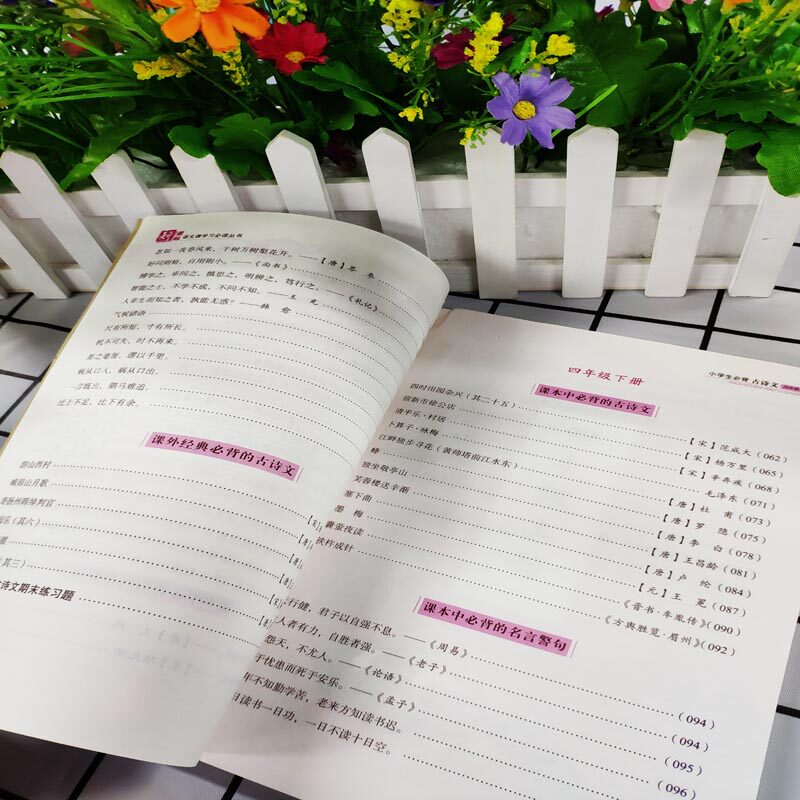 语文课学习必读丛书
忽如一夜春风来，千树万树梨花开。——【唐】岑 参
好问则裕，自用则小。——《尚书》
博学之，审问之，慎思之，明辨之，笃行之。——《礼记》
智能之士，不学不成，不问不知。——王 充
人非生而知之者，孰能无惑？——韩 愈
气候谚语
尺有所短，寸有所长。
机不可失，时不再来。
差之毫厘，谬以千里。
病从口入，祸从口出。
一言既出，驷马难追。
比上不足，比下有余。
课外经典必背的古诗文
游山西村
峨眉山月歌
寄扬州韩绰判官
乐(其六)
(其三)
诗文期末练习题
小学生必背 古诗文
四年级下册
课本中必背的古诗文
四时田园杂兴（其二十五）【宋】范成大（062）
宿新市徐公店【宋】杨万里（065）
清平乐·村居【宋】辛弃疾（068）
卜算子·咏梅 毛泽东（071）
江畔独步寻花（黄师塔前江水东）【唐】杜 甫（073）
蜂【唐】罗 隐（075）
独坐敬亭山【唐】李 白（078）
芙蓉楼送辛渐【唐】王昌龄（081）
塞下曲【唐】卢 纶（084）
墨 梅【元】王 冕（087）
囊萤夜读《晋书·车胤传》（090）
铁杵成针《方舆胜览·眉州》（092）
课本中必背的名言警句
行健，君子以自强不息。——《周易》（094）
人者有力，自胜者强。——《老子》（094）
怨天，不尤人。——《论语》（095）
于忧患而死于安乐。——《孟子》（096）
年不知勤学苦，老来方知读书迟。
日读书一日功，一日不读十日空。